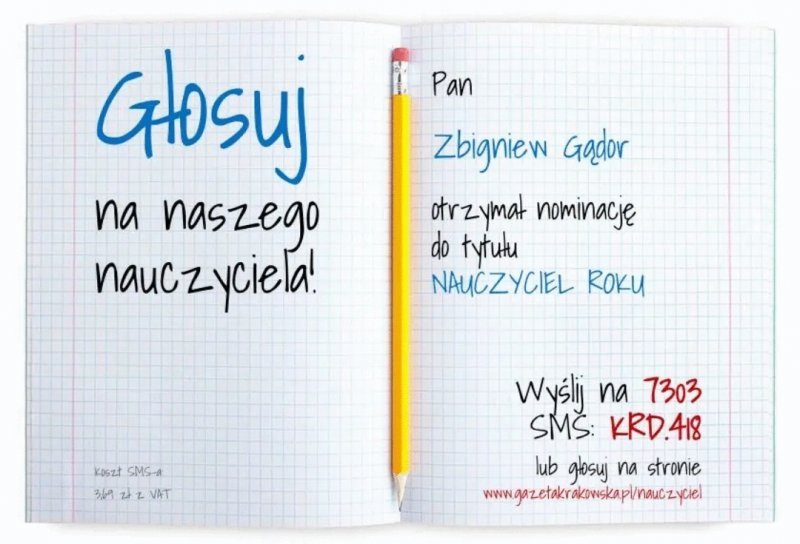 Głosuj
na naszego
nauczyciela!
koszt SMS-a
3,69 zł z VAT
Pan
Zbigniew Gądor
otrzymał nominację
do tytułu
NAUCZYCIEL ROKU
Wyślij na 7303
SMS: KRD.418
lub głosuj na stronie
www.gazetakrakowska.pl/nauczyciel